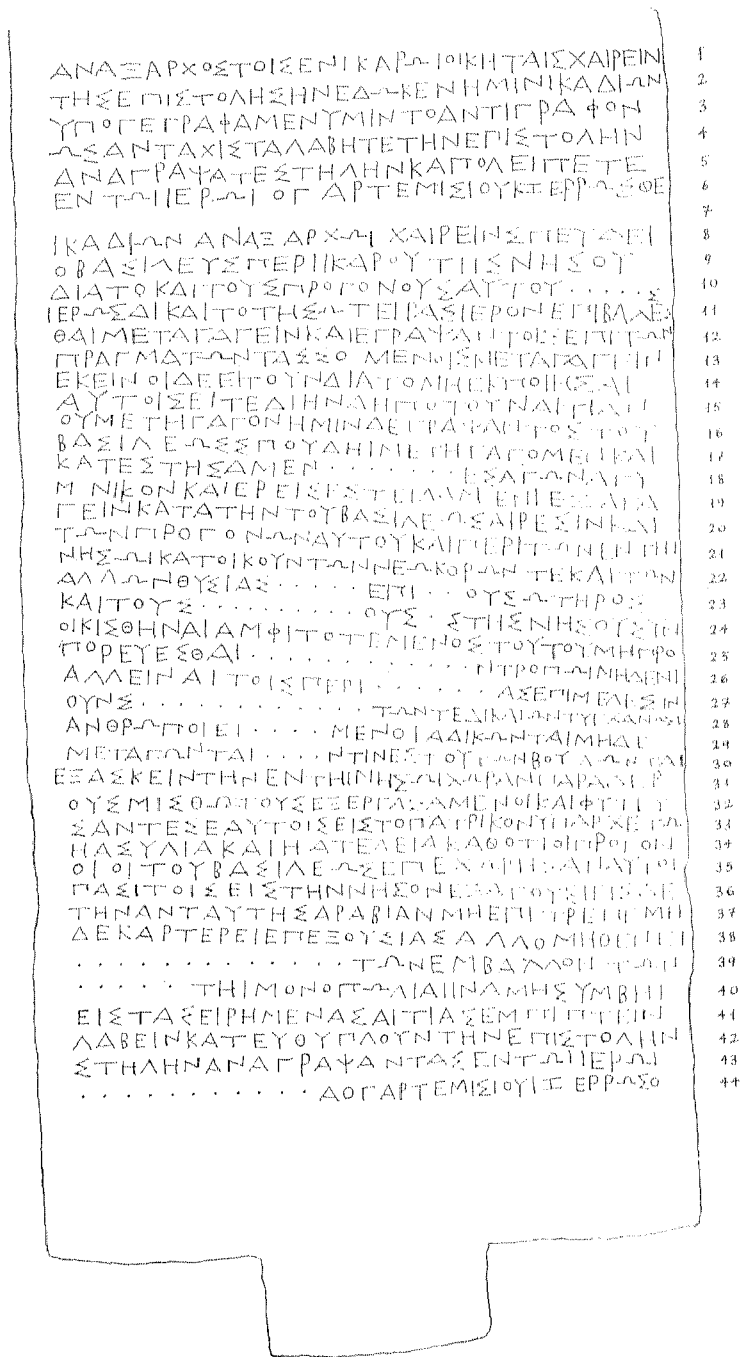 ΑΝΑΞΑΡΧΟΣΤΟΙΣΕΝΙΚΑΡΩΙΟΙΚΗΤΑΙΣΧΑΙΡΕΙΝ 1
ΤΗΣΕΠΙΣΤΟΛΗΣΗΝΕΔΩΚΕΝΗΜΙΝΙΚΑΔΙΩΝ 2
ΥΠΟΓΕΓΡΑΦΑΜΕΝΥΜΙΝΤΟΑΝΤΙΓΡΑΦΟΝ 3
ΩΣΑΝΤΑΧΙΣΤΑΛΑΒΗΤΕΤΗΝΕΠΙΣΤΟΛΗΝ 4
ΑΝΑΓΡΑΨΑΤΕΣΤΗΛΗΝΚΑΠΟΛΕΙΠΕΤΕ 5
ΕΝΤΩΙΙΕΡΩΙ ΟΓ ΑΡΤΕΜΙΣΙΟΥΚΖ ΕΡΡΩΣΘΕ 6
7
ΙΚΑΔΙΩΝ ΑΝΑΞΑΡΧΩΙ ΧΑΙΡΕΙΝΣΠΕΥΔΕΙ 8
ΟΒΑΣΙΛΕΥΣΠΕΡΙΙΚΑΡΟΥΤΗΣΝΗΣΟΥ 9
ΔΙΑΤΟΚΑΙΤΟΥΣΠΡΟΓΟΝΟΥΣΑΥΤΟΥ.....Σ 10
ΙΕΡΩΣΔΙΚΑΙΤΟΤΗΣΩΤΕΙΒΑΣΙΕΡΟΝΕΠΙΒΛΛΕΣ 11
ΘΑΙΜΕΤΑΓΑΓΕΙΝΚΑΙΕΓΡΑΨΑΝΤΟΙΣΕΠΙΤΩΝ 12
ΠΡΑΓΜΑΤΩΝΤΑΣΣΟΜΕΝΟΙΣΜΕΤΑΓΑΓΕΙΝ 13
ΕΚΕΙΝΟΙΔΕΕΙΤΟΥΝΔΙΑΤΟΜΗΕΚΠΟΙΗΣΑΙ 14
ΑΥΤΟΙΣΕΙΤΕΔΙΗΝΔΗΠΟΤΟΥΝΑΙΤΙΑΝ 15
ΟΥΜΕΤΗΓΑΓΟΝΗΜΙΝΔΕΓΡΑΨΑΝΤΟΣΤΟΥ 16
ΒΑΣΙΛΕΩΣΣΠΟΥΔΗΙΜΕΤΗΓΑΓΟΜΕΝΚΑΙ 17
ΚΑΤΕΣΤΗΣΑΜΕΝ.......ΕΣΑΓΩΝΑΓΥ 18
ΜΝΙΚΟΝΚΑΙΕΡΕΙΣΕΣΤΕΙΛΑΜΕΝΙΕΞΑΓΑ 19
ΓΕΙΝΚΑΤΑΤΗΝΤΟΥΒΑΣΙΛΕΩΣΑΙΡΕΣΙΝΚΑΙ 20
ΤΩΝΠΡΟΓΟΝΩΝΑΥΤΟΥΚΑΙΠΕΡΙΤΩΝΕΝΤΗΙ 21
ΝΗΣΩΙΚΑΤΟΙΚΟΥΝΤΩΝΝΕΩΚΟΡΩΝΤΕΚΑΙΤΩΝ 22
ΑΛΛΩΝΘΥΣΙΑΣ.....ΕΠΙ..ΟΥΣΩΤΗΡΟΣ 23
ΚΑΙΤΟΥΣ..........ΟΥΣ.ΣΤΗΣΝΗΣΟΥΣΥΝ 24
ΟΙΚΙΣΘΗΝΑΙΑΜΦΙΤΟΤΕΜΕΝΟΣΤΟΥΤΟΥΜΗΠΡΟ 25
ΠΟΡΕΥΕΣΘΑΙ.............ΝΤΡΟΠΩΙΜΗΔΕΝΙ 26
ΑΛΛΕΙΝΑΙΤΟΙΣΠΕΡΙ.......ΑΣΕΠΙΜΕΛΕΙΣΙΝ 27
ΟΥΝΣ.............ΤΩΝΤΕΔΙΚΑΙΩΝΤΥΓΧΑΝΩΣΙ 28
ΑΝΘΡΩΠΟΙΕΙ....ΜΕΝΟΙΑΔΙΚΩΝΤΑΙΜΗΔΕ 29
ΜΕΤΑΓΩΝΤΑΙ....ΝΤΙΝΕΣΤΟΥΤΩΝΒΟΥΛΩΝΤΑΙ 30
ΕΞΑΣΚΕΙΝΤΗΝΕΝΤΗΙΝΗΣΩΙΧΩΡΑΝΠΑΡΑΔΕΡ 31
ΟΥΣΜΙΣΘΩΤΟΥΣΕΞΕΡΓΑΣΑΜΕΝΟΙΚΑΙΦΥΤΕΥ 32
ΣΑΝΤΕΣΕΑΥΤΟΙΣΕΙΣΤΟΠΑΤΡΙΚΟΝΥΠΑΡΧΕΤΩ 33
ΗΑΣΥΛΙΑΚΑΙΗΑΤΕΛΕΙΑΚΑΘΟΤΙΟΙΠΡΟΓΟΝ 34
ΟΙΟΙΤΟΥΒΑΣΙΛΕΩΣΕΠΕΧΩΡΗΣΑΝΑΥΤΟΙ 35
ΠΑΣΙΤΟΙΣΕΙΣΤΗΝΝΗΣΟΝΕΞΑΓΟΥΣΙΕΙΣΔΕ 36
ΤΗΝΑΝΤΑΥΤΗΣΑΡΑΒΙΑΝΜΗΕΠΙΤΡΕΠΕΜΗ 37
ΔΕΚΑΡΤΕΡΕΙΕΠΕΞΟΥΣΙΑΣΑΛΛΟΜΗΘΕΝΕΙ 38
.............ΤΩΝΕΜΒΑΛΛΟΝΤΩΝ 39
.....ΤΗΙΜΟΝΟΠΩΛΙΑΙΙΝΑΜΗΣΥΜΒΗΙ 40
ΕΙΣΤΑΣΕΙΡΗΜΕΝΑΣΑΙΤΙΑΣΕΜΠΙΠΤΕΙΝ 41
ΛΑΒΕΙΝΚΑΤΕΥΟΥΠΛΟΥΝΤΗΝΕΠΙΣΤΟΛΗΝ 42
ΣΤΗΛΗΝΑΝΑΓΡΑΨΑΝΤΑΣΕΝΤΩΙΙΕΡΩΙ 43
...........ΔΟΓΑΡΤΕΜΙΣΙΟΥΙΖ ΕΡΡΩΣΟ 44